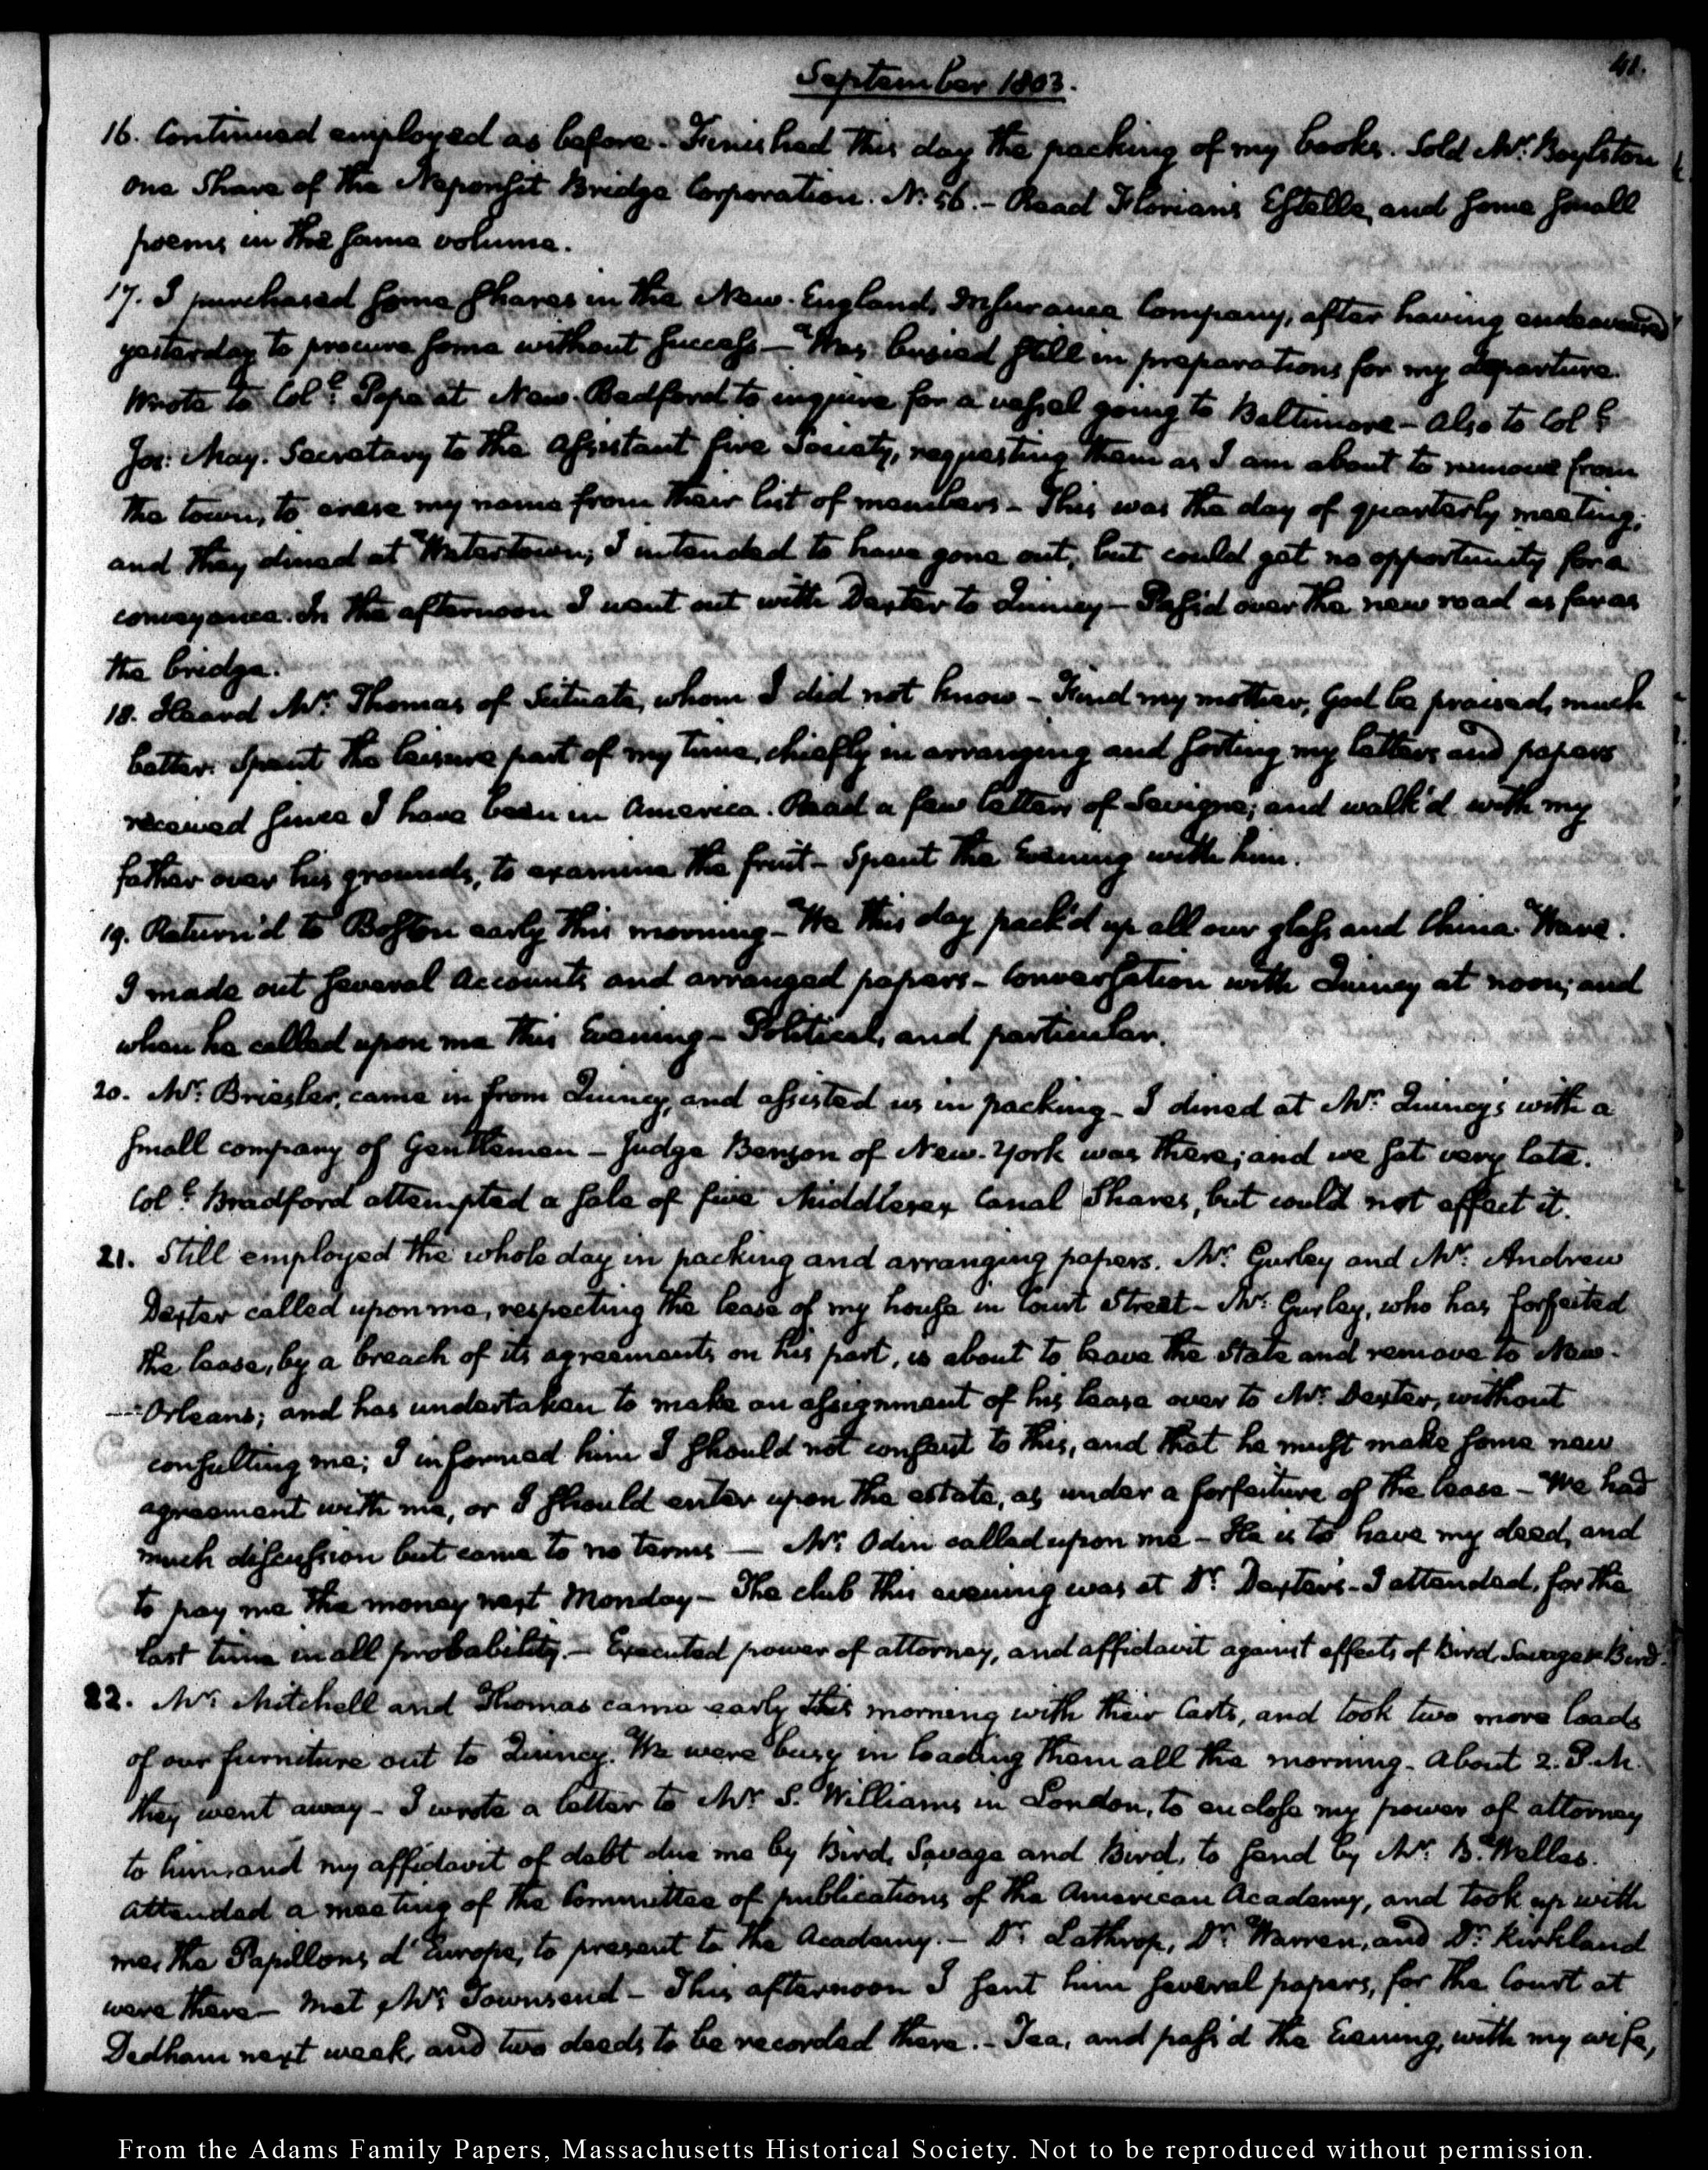 41.
September 1803.
16. Continued employed as before - Finished this day the packing of my books. Sold Mr. Boylston
one Share of the Neponsit Bridge Corporation. N: 56. - Read Florian's Estelle, and some small
poems in the same volume.
17. I purchased some shares in the New-England Insurance Company, after having endeavoured
yesterday to procure some without success - Was busied still in preparations for my departure.
Wrote to Coll. Pope at New-Bedford to inquire for a vessel going to Baltimore - Also to Coll.
Jos: May. Secretary to the Assistant fire Society, requesting them as I am about to remove from
the town, to erase my name from their list of members - This was the day of quarterly meeting;
and they dined at Watertown; I intended to have gone out, but could get no opportunity for a
conveyance. In the afternoon I went out with Dexter to Quincy - Pass'd over the new road as far as
the bridge.
18. Heard Mr. Thomas of Scituate, whom I did not know - Find my mother, God be praised, much
better. Spent the leisure part of my time, chiefly in arranging and sorting my letters and papers
received since I have been in America. Read a few letters of Sevigne; and walk'd with my
father over his grounds, to examine the fruit - Spent the Evening with him.
19. Return'd to Boston early this morning - We this day pack'd up all our glass and China-Ware.
I made out several Accounts and arranged papers - Conversation with Quincy at noon; and
when he called upon me this Evening - Political, and particular.
20. Mr. Briesler, came in from Quincy, and assisted us in packing - I dined at Mr. Quincy's with a
small company of Gentlemen - Judge Benson of New-York was there; and we sat very late.
Coll. Bradford attempted a sale of five Middlesex Canal Shares, but could not effect it.
21. Still employed the whole day in packing and arranging papers. Mr. Gurley and Mr. Andrew
Dexter called upon me, respecting the lease of my house in Court Street - Mr. Gurley, who has forfeited
the lease, by a breach of its agreements on his part, is about to leave the State and remove to New-
-Orleans; and has undertaken to make an assignment of his lease over to Mr. Dexter, without
consulting me; I informed him I should not consent to this, and that he must make some new
agreement with me, or I should enter upon the estate, as under a forfeiture of the lease - We had
much discussion but came to no terms — Mr. Odin called upon me - He is to have my deed, and
to pay me the money next Monday - The club this evening was at Dr. Dexter's - I attended, for the
last time in all probability. - Executed power of attorney, and affidavit against effects of Bird, Savage & Bird.
22. Mr. Mitchell and Thomas came early this morning with their Carts, and took two more loads
of our furniture out to Quincy. We were busy in loading them all the morning. About 2. P.M.
they went away - I wrote a letter to Mr. S. Williams in London, to enclose my power of attorney
to him, and my affidavit of debt due me by Bird, Savage and Bird, to send by Mr. B. Welles.
Attended a meeting of the Committee of publications of the American Academy, and took up with
me, the Papillons d'Europe, to present to the Academy. - Dr. Lathrop, Dr. Warren, and Dr. Kirkland
were there - Met Mr. Townsend - This afternoon I sent him several papers, for the Court at
Dedham next week, and two deeds to be recorded there. - Tea, and pass'd the Evening, with my wife,
From the Adams Family Papers, Massachusetts Historical Society. Not to be reproduced without permission.